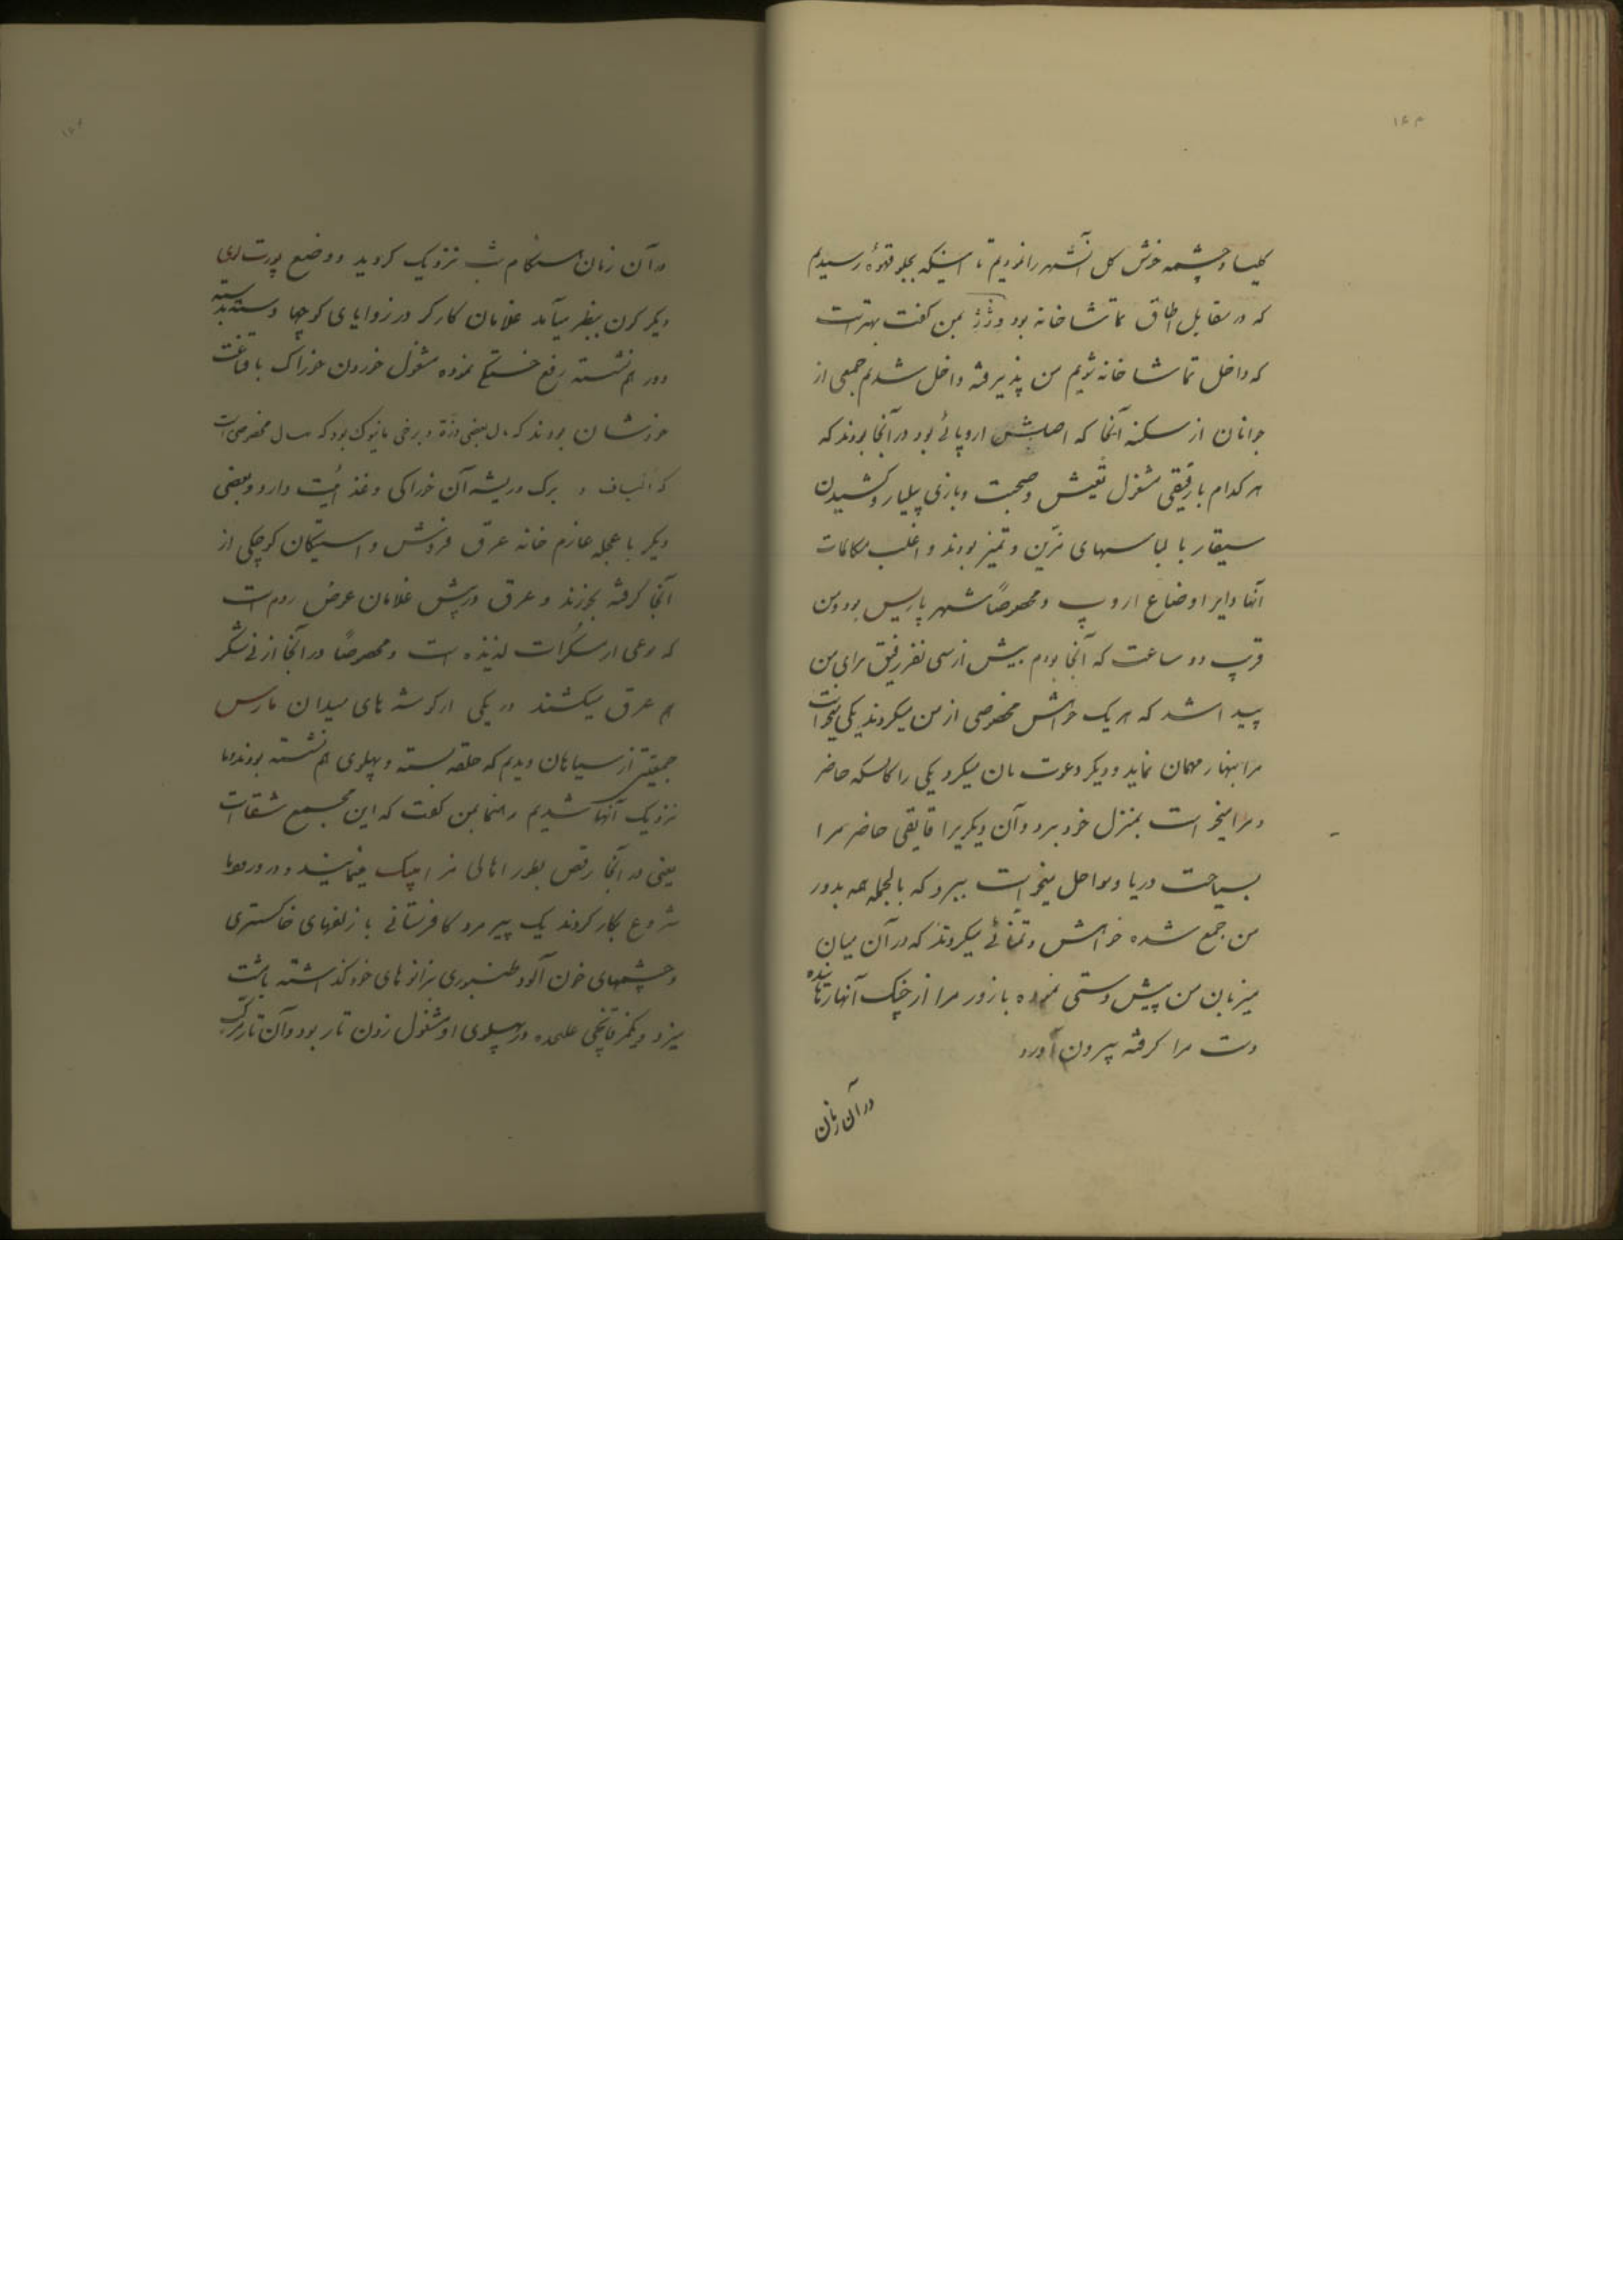 ۱۶۳
کلیسا و چشمه خوش کل آنشهر را نمودیم تا اینکه بجلو قهوهٔ رسیدیم
که در مقابل اطاق تماشاخانه بود وژژ بمن کفت بهتر است
که داخل تماشاخانه شویم من پذیرفته داخل شدیم جمعی از
جوانان از سکنه آنجا که اصلش اروپائی بود در آنجا بودند که
هر کدام با رفیقی مشغول تعیش و صحبت و بازی بیلیار و کشیدن
سیقار با لباسهای مزین و تمیز بودند و اغلب مکالمات
آنها دایر اوضاع اروپ و مخصوصاً شهر پاریس بود و من
قریب دو ساعت که آنجا بودم بیش از سی نفر رفیق برای من
پیدا شد که هر یک خواهش مخصوصی از من میکردند یکی میخواست
مرا بنهار مهمان نماید و دیکر دعوت بان میکرد یکی را کالسکه حاضر
و مرا میخواست بمنزل خود برد و آن دیکریرا قایقی حاضر مرا
بسیاحت دریا و سواحل میخواست ببرد که بالجمله همه بدور
من جمع شده خواهش و تمنائی میکردند که در آن میان
میزبان من پیش دستی نموده با زور مرا از چنک آنها رهانیده
دست مرا کرفته بیرون آورد
در آن زمان
در آن زمان هنکام شب نزدیک کردید و وضع پورت لوی
دیکر کون بنظر میآمد غلامان کارکر در زوایای کوچها دسته بدسته
دور هم نشسته رفع خستکی نموده مشغول خوردن خوراک با قناعت
خودشان بودند که مال بعضی ذرة و برخی مانیوک بود که نهال مخصوصی است
که الیاف و برک و ریشه آن خوراکی و غذائیت دارد و بعضی
دیکر با عجله عازم خانه عرق فروش و استیکان کوچکی از
آنجا کرفته بخورند و عرق در پیش غلامان عوض روم است
که نوعی از مسکرات لذیذه است و مخصوصاً در آنجا از نی شکر
هم عرق میکشند در یکی از کوشه های میدان مارس
جمعیتی از سیاهان دیدیم که حلقه بسته و پهلوی هم نشسته بودند و ما
نزدیک آنها شدیم راهنما بمن کفت که این مجمع شقا است
یعنی در آنجا رقص بطور اهالی مزامبیک مینمایند و در ورود ما
شروع بکار کردند یک پیر مرد کافرستانی با زلفهای خاکستری
و چشمهای خون آلود طنبوری بزانوهای خود کذاشته با مشت
میزد و یکنفر قاپچی علیحده در پهلوی او مشغول زدن تار بود و آن تار مرکب